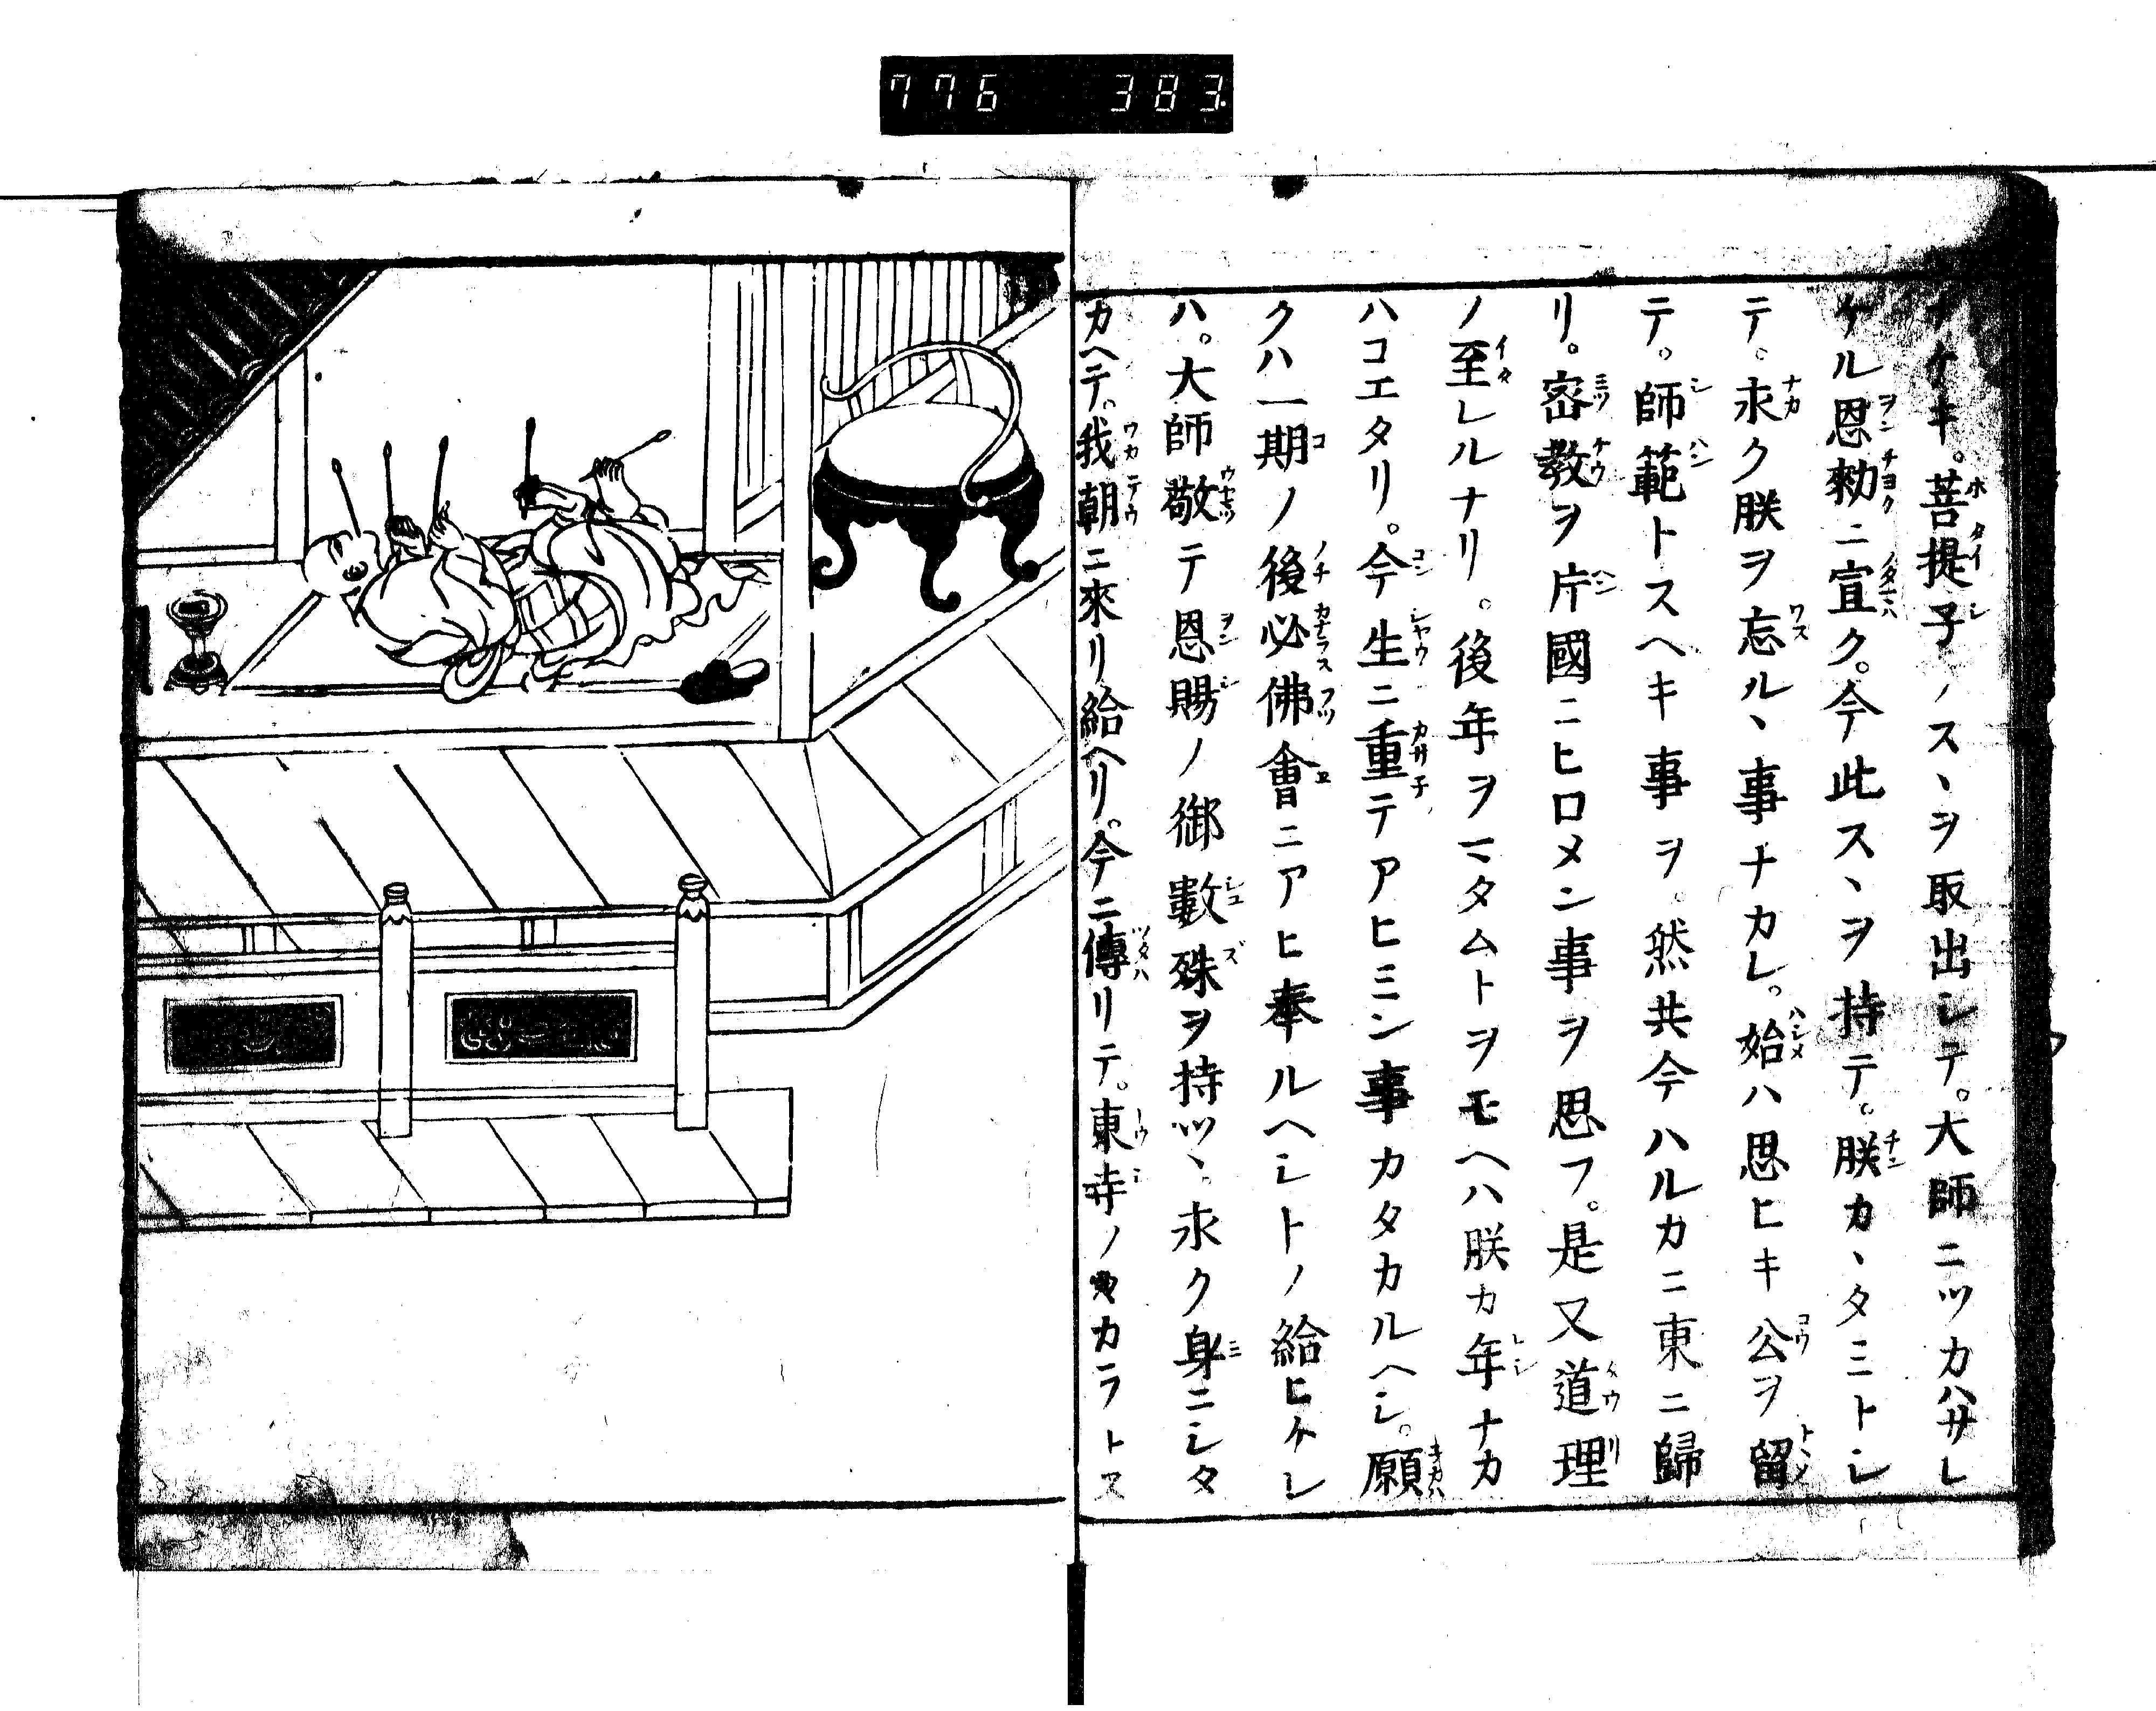 776 383.
ナケキ。菩提子ノスヽヲ取出シテ。大師ニツカハサレ
ケル恩勅ニ宣ク。今此スヽヲ持テ。朕カヽタミトシ
テ。永ク朕ヲ忘ルヽ事ナカレ。始ハ思ヒキ公ヲ留
テ。師範トスヘキ事ヲ。然共今ハルカニ東ニ歸
リ。密教ヲ片國ニヒロメン事ヲ思フ。是又道理
ノ至レルナリ。後年ヲマタムトヲモヘハ朕カ年ナカ
ハコエタリ。今生ニ重テアヒミン事カタカルヘシ。願
クハ一期ノ後必佛會ニアヒ奉ルヘシトノ給ヒケレ
ハ。大師敬テ恩賜ノ御數殊ヲ持ツヽ。永ク身ニシタ
カヘテ。我朝ニ來リ給ヘリ。今ニ傳リテ。東寺ノ タカラトス